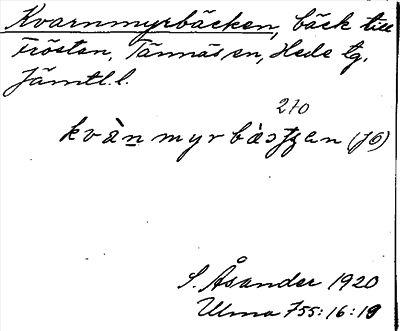 Kvarnmyrbäcken, bäck till
Frösten, Tännäs sn, Hede tg.
Jämtl. l.
210
S. Åsander 1920
Ulma 755:16:19